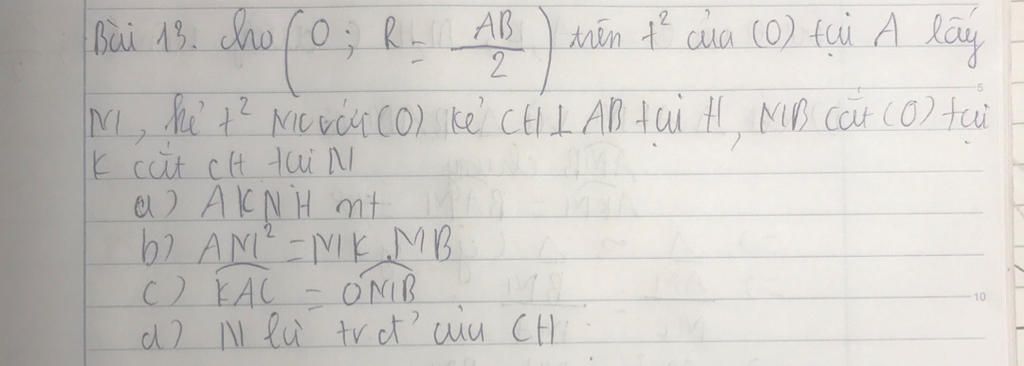 Bài 13. Cho (O; R = AB/2) trên t² của (O) tại A lấy
M, kẻ t² MC với (O) kẻ CH ⊥ AB tại H, MB cắt (O) tại
K cắt CH tại N
a) AKNH nt
b) AM² = MK.MB
c) \widehat{KAC} = \widehat{OMB}
d) N là tr đ' của CH
10